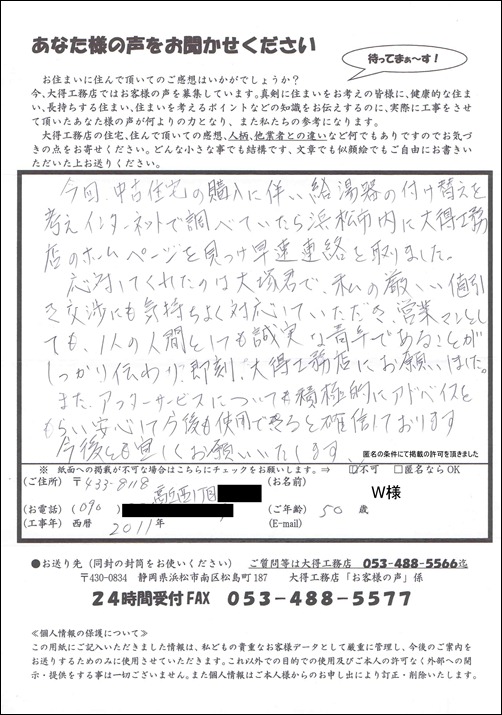 あなた様の声をお聞かせください
待ってまぁ～す！
お住まいに住んで頂いてのご感想はいかがでしょうか？
今、大得工務店ではお客様の声を募集しています。真剣に住まいをお考えの皆様に、健康的な住ま
い、長持ちする住まい、住まいを考えるポイントなどの知識をお伝えするのに、実際に工事をさせ
て頂いたあなた様の声が何よりの力となり、また私たちの参考になります。
大得工務店の住宅、住んで頂いての感想、人柄、他業者との違いなど何でもありですのでお気づ
きの点をお寄せください。どんな小さな事でも結構です、文章でも似顔絵でもご自由にお書きい
ただいた上お送りください。
今回、中古住宅の購入に伴い給湯器の付け替えを
考えインターネットで調べていたら浜松市内に大得工務
店のホームページを見つけ早速連絡を取りました。
応対してくれたのは大塚君で、私の厳しい値引
き交渉にも気持ちよく対応していただき、営業マンとし
ても、1人の人間としても誠実な青年であることが
しっかり伝わり、即刻、大得工務店にお願いしました。
また、アフターサービスについても積極的にアドバイスを
もらい安心して今後も使用できると確信しております
今後とも宜しくお願いいたします
匿名の条件にて掲載の許可を頂きました
※ 紙面への掲載が不可な場合はこちらにチェックをお願いします。⇒ ☑不可 □匿名ならOK
(ご住所) 〒433-8118 (お名前)
高丘西1丁目 W様
(お電話) (090) (ご年齢) 50 歳
(工事年) 西暦 2011年 (E-mail)
●お送り先（同封の封筒をお使いください） ご質問等は大得工務店 053-488-5566迄
〒430-0834 静岡県浜松市南区松島町187 大得工務店「お客様の声」係
24時間受付FAX 053-488-5577
≪個人情報の保護について≫
この用紙にご記入いただきました情報は、私どもの貴重なお客様データとして厳重に管理し、今後のご案内を
お送りするためのみに使用させていただきます。これ以外での目的での使用及びご本人の許可なく外部への開
示・提供をする事は一切ございません。また個人情報はご本人様からのお申し出により訂正・削除いたします。